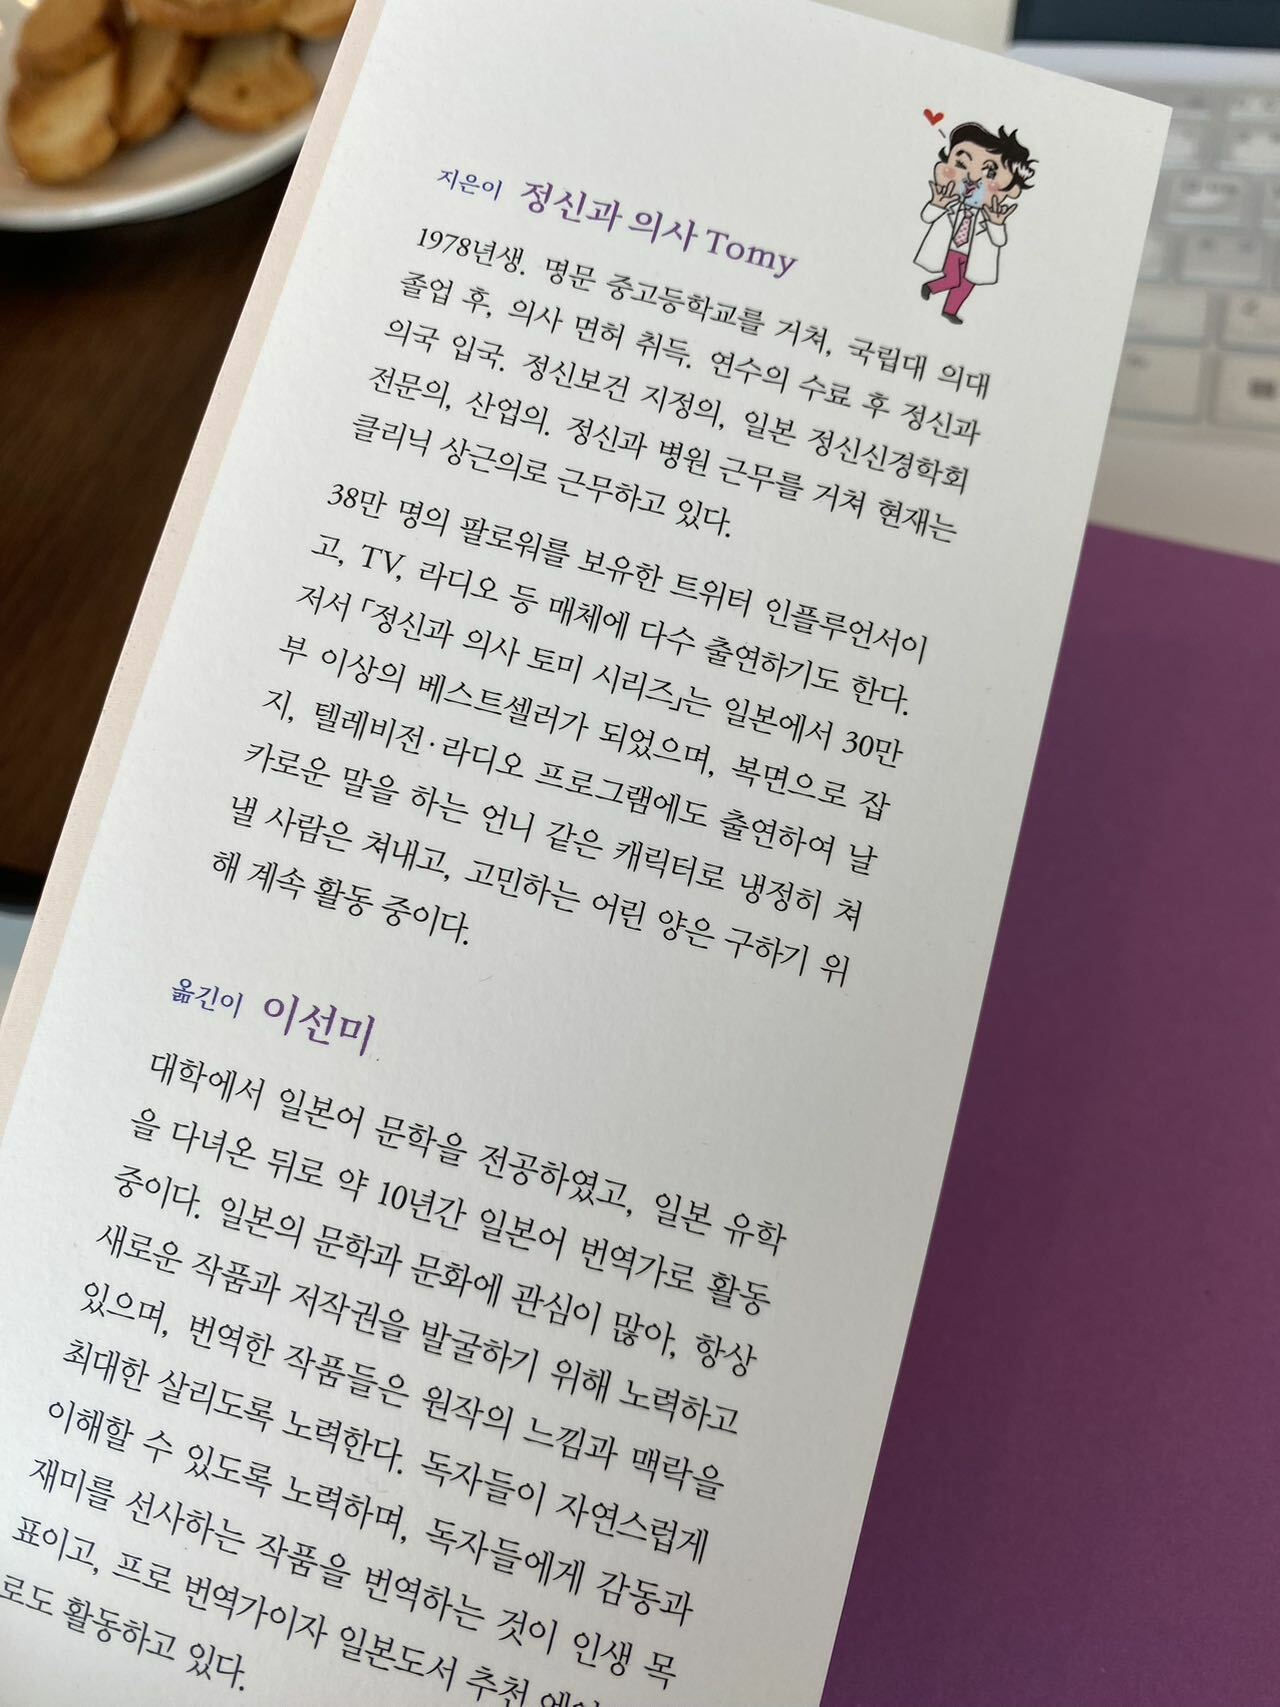 지은이 정신과 의사 Tomy
1978년생. 명문 중고등학교를 거쳐, 국립대 의대
졸업 후, 의사 면허 취득. 연수의 수료 후 정신과
의국 입국. 정신보건 지정의, 일본 정신신경학회
전문의, 산업의. 정신과 병원 근무를 거쳐 현재는
클리닉 상근의로 근무하고 있다.
38만 명의 팔로워를 보유한 트위터 인플루언서이
고, TV, 라디오 등 매체에 다수 출연하기도 한다.
저서 「정신과 의사 토미 시리즈」는 일본에서 30만
부 이상의 베스트셀러가 되었으며, 복면으로 잡
지, 텔레비전·라디오 프로그램에도 출연하여 날
카로운 말을 하는 언니 같은 캐릭터로 냉정히 쳐
낼 사람은 쳐내고, 고민하는 어린 양은 구하기 위
해 계속 활동 중이다.
옮긴이 이선미
대학에서 일본어 문학을 전공하였고, 일본 유학
을 다녀온 뒤로 약 10년간 일본어 번역가로 활동
중이다. 일본의 문학과 문화에 관심이 많아, 항상
새로운 작품과 저작권을 발굴하기 위해 노력하고
있으며, 번역한 작품들은 원작의 느낌과 맥락을
최대한 살리도록 노력한다. 독자들이 자연스럽게
이해할 수 있도록 노력하며, 독자들에게 감동과
재미를 선사하는 작품을 번역하는 것이 인생 목
표이고, 프로 번역가이자 일본도서 추천
로도 활동하고 있다.